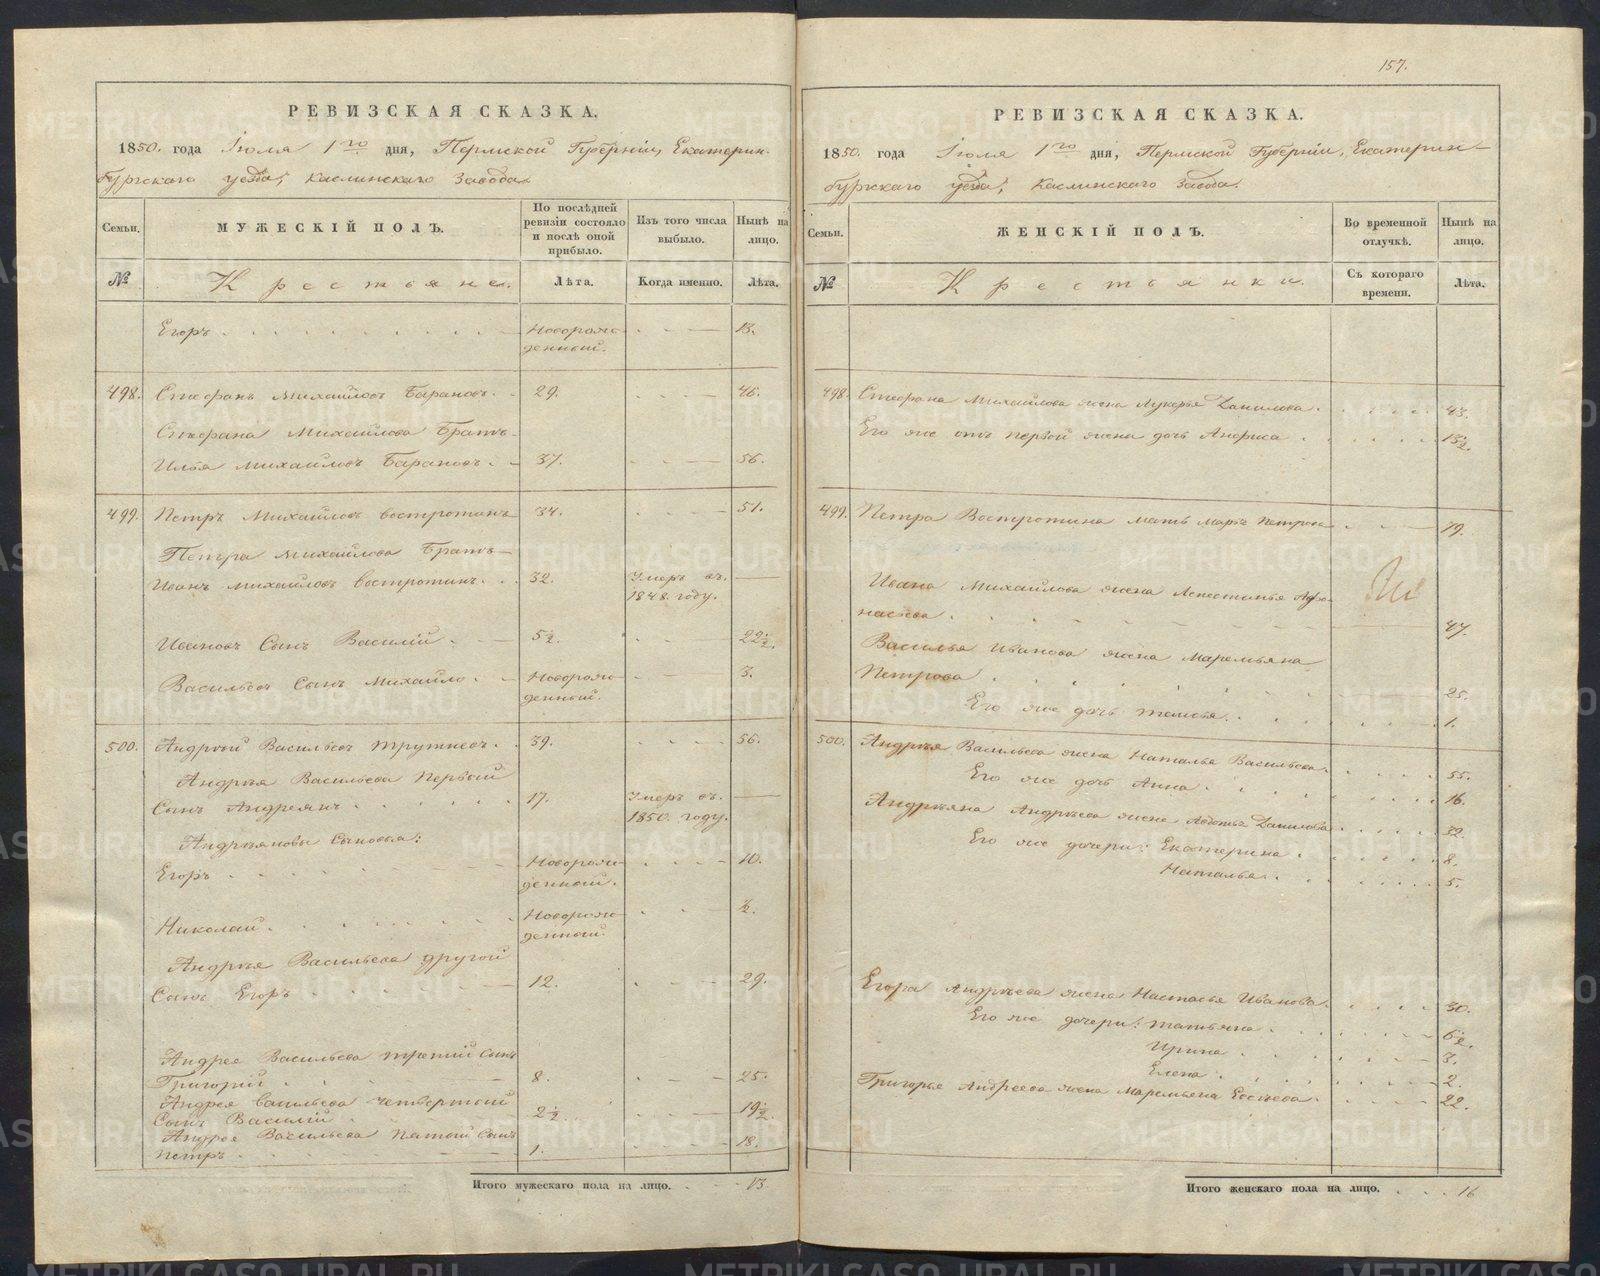 РЕВИЗСКАЯ СКАЗКА.
1850. года Іюля 1го дня, Пермской Губерніи, Екатерин-
бургскаго уѣзда, Каслинскаго Завода.
Семьи.
МУЖЕСКІЙ ПОЛЪ.
По послѣдней ревизіи состояло и послѣ оной прибыло.
Изъ того числа выбыло.
Нынѣ на лицо.
№
Крестьяне.
Лѣта.
Когда именно.
Лѣта.
Егоръ Новорож- 13.
денный.
498. Стефанъ Михайловъ Барановъ. 29. 46.
Стефана Михайлова Братъ
Илья Михайловъ Барановъ. 37. 56.
499. Петръ Михайловъ Востротинъ 34. 51.
Петра Михайлова Братъ
Иванъ Михайловъ Востротинъ. 32. Умеръ въ
1848. году.
Ивановъ Сынъ Василій 5½. 22½.
Васильевъ Сынъ Михайло. Новорож- 3.
денный.
500. Андрей Васильевъ Трутневъ. 39. 56.
Андрѣя Васильева Первый
Сынъ Андреянъ 17. Умеръ въ
1850. году.
Андрѣяновы Сыновья:
Егоръ Новорож- 10.
денный.
Николай. Новорож- ½.
денный.
Андрѣя Васильева другой
Сынъ Егоръ 12. 29.
Андрея Васильева третій сынъ
Григорій 8. 25.
Андрея Васильева четвертый
Сынъ Василій 2½. 19½.
Андрея Васильева Пятый Сынъ
Петръ 1. 18.
Итого мужескаго пола на лицо. 13
157.
РЕВИЗСКАЯ СКАЗКА.
1850. года Іюля 1го дня, Пермской Губерніи, Екатерин-
бургскаго уѣзда, Каслинскаго Завода.
Семьи.
ЖЕНСКІЙ ПОЛЪ.
Во временной отлучкѣ.
Нынѣ на лицо.
№
Крестьянки.
Съ котораго времени.
Лѣта.
498. Стефана Михайлова жена Лукерья Данилова. 43.
Его же отъ первой жены дочь Анфиса 13½.
499. Петра Востротина мать Марья Петрова 79.
Ивана Михайлова жена Афо-
насьева 47.
Василья Иванова жена Маремьяна
Петрова 25.
Его же дочь 1.
500. Андрѣя Васильева жена Наталья Васильева. 55.
Его же дочь Анна 16.
Андрѣяна Андрѣева жена Авдотья Данилова 32.
Его же дочери: Екатерина 8.
Наталья 5.
Егора Андрѣева жена Настасья Иванова 30.
Его же дочери: Татьяна 6½.
Ирина 3.
Елена 2.
Григорья Андреева жена Маремьяна Евсѣева 22.
Итого женскаго пола на лицо. 16
METRIKI.GASO-URAL.RU